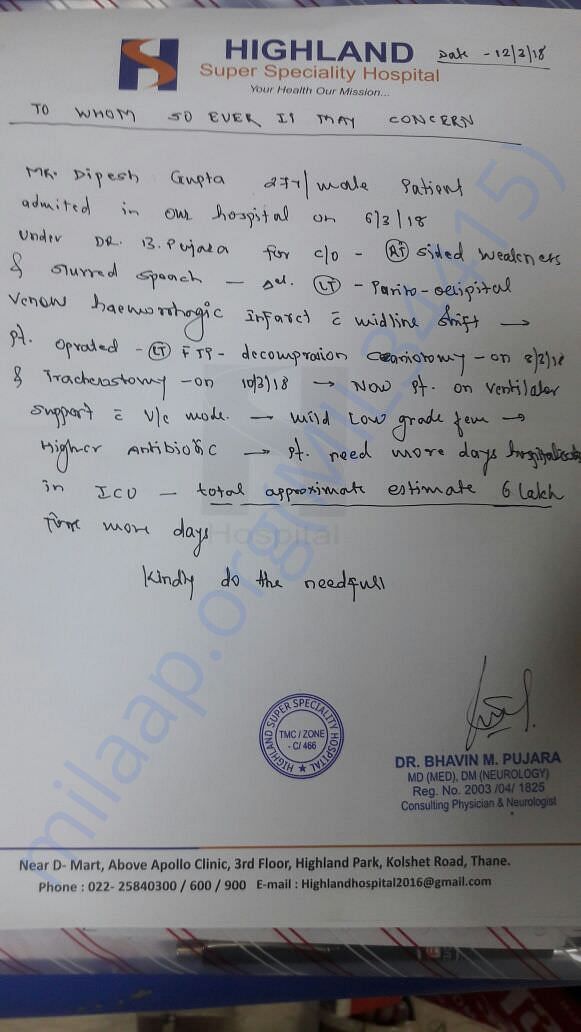 HIGHLAND
Super Speciality Hospital
Your Health Our Mission...
Date - 12/3/18
TO WHOM SO EVER IT MAY CONCERN
Mr. Dipesh Gupta 27y/male Patient
admited in our hospital on 6/3/18
under DR. B. Pujara for c/o - RT sided weakness
& slurred speach - LT - Parito-occipital
Venous haemorrhagic infarct c midline shift →
pt. oprated - LT FTP - decompraion craniotomy - on 8/3/18
& Tracheostomy - on 10/3/18 → Now pt. on ventilator
support c V/c mode. → mild low grade fever →
Higher Antibiotic → pt. need more days hospitalisation
in ICU - total approximate estimate 6 lakh
more days
Kindly do the needfull
HIGHLAND SUPER SPECIALITY HOSPITAL
TMC / ZONE
- C/ 466
DR. BHAVIN M. PUJARA
MD (MED), DM (NEUROLOGY)
Reg. No. 2003 /04/ 1825
Consulting Physician & Neurologist
Near D- Mart, Above Apollo Clinic, 3rd Floor, Highland Park, Kolshet Road, Thane.
Phone : 022- 25840300 / 600 / 900 E-mail : Highlandhospital2016@gmail.com
Hospital
milaap.org(MIL34415)